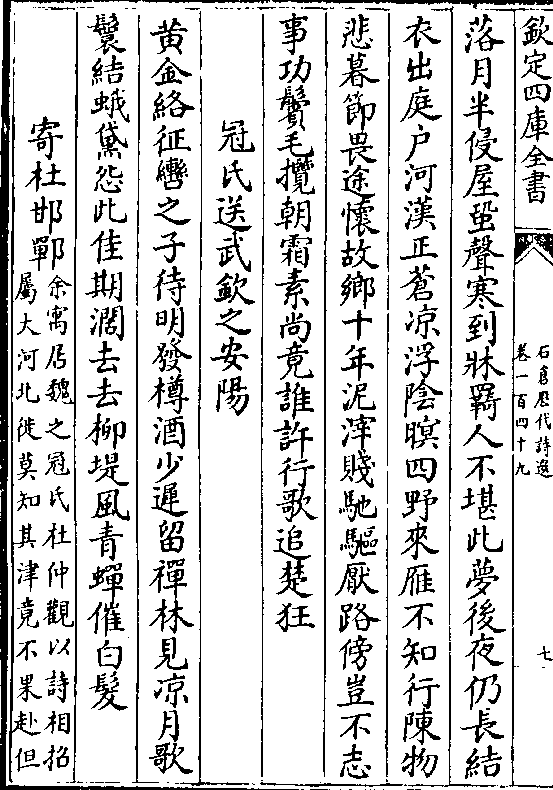 欽定四庫全書
石倉歷代詩選
卷一百四十九
七
落月半侵屋蛩聲寒到牀羇人不堪此夢後夜仍長結
衣出庭户河漢正蒼凉浮陰暝四野來雁不知行陳物
悲暮節畏途懷故鄉十年泥滓賤馳驅厭路傍豈不志
事功鬢毛攬朝霜素尚竟誰許行歌追楚狂
冠氏送武欽之安陽
黄金絡征轡之子待明發樽酒少遲留禪林見凉月歌
鬟結蛾黛怨此佳期濶去去柳堤風青蟬催白髮
寄杜邯鄲
余寓居魏之冠氏杜仲觀以詩相招
屬大河北徙莫知其津竟不果赴但